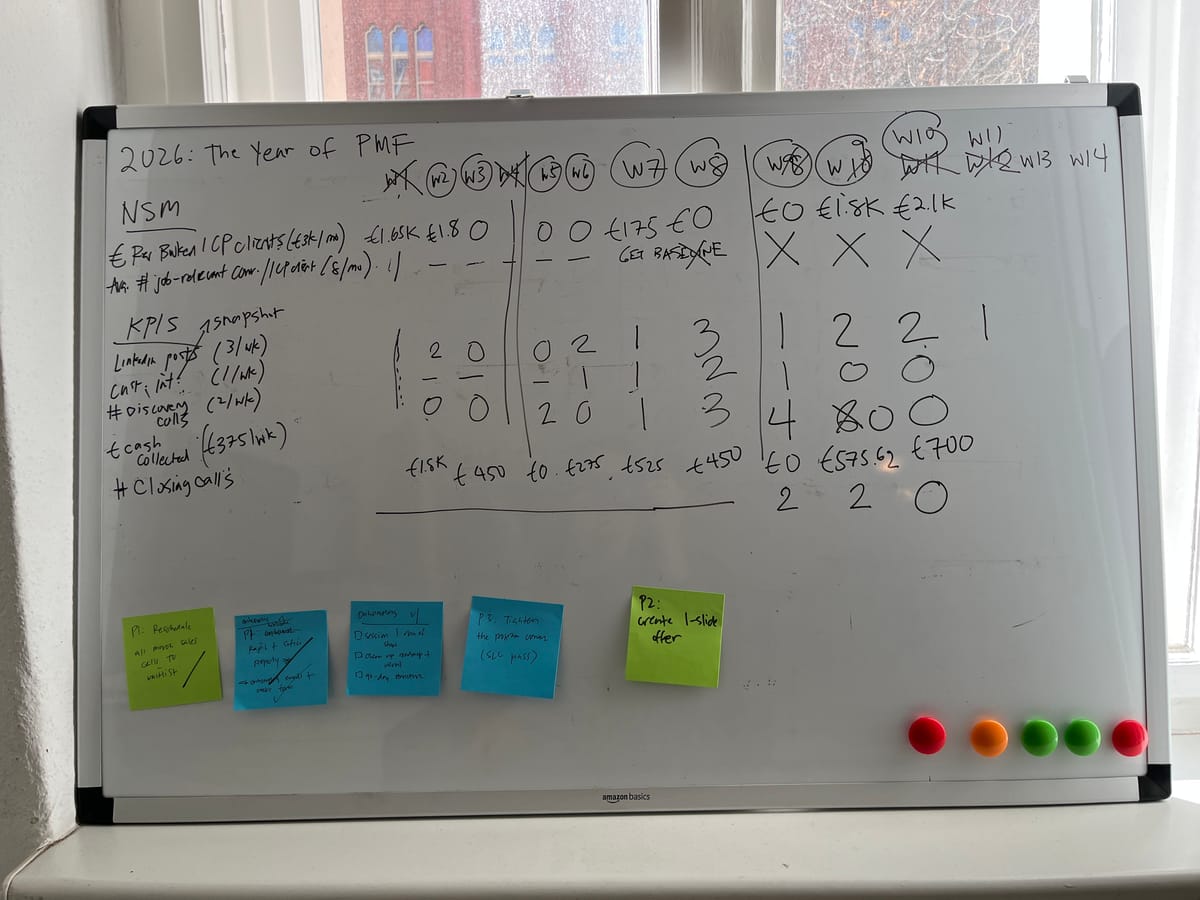 2026: The Year of PMF
W1 W2 W3 W4 W5 W6 W7 W8 W9 W10 W10 W11 W13 W14
NSM
€ Rev Banked / ICP clients (€3k/mo) €1.65K €1.8 0 0 0 €175 €0 €0 €1.8K €2.1K
Avg. # job-relevant conv./ICP client (8/mo). — — — — — GET BASELINE X X X
KPIs snapshot
LinkedIn posts (3/wk) 2 0 0 2 1 3 1 2 2 1
Cust. int. (1/wk) — — — 1 1 2 1 0 0
# Discovery calls (2/wk) 0 0 2 0 1 3 4 0 0
€ cash collected (€375/wk) €1.8K €450 €0 €275 €525 €450 €0 €575.62 €700
# Closing calls 2 2 0
P1: Reschedule
all minor sales
calls to
waitlist
properly
Onboarding
P3: Tighten
the positn convo
(SLC pass)
P2:
create 1-slide
offer
amazon basics